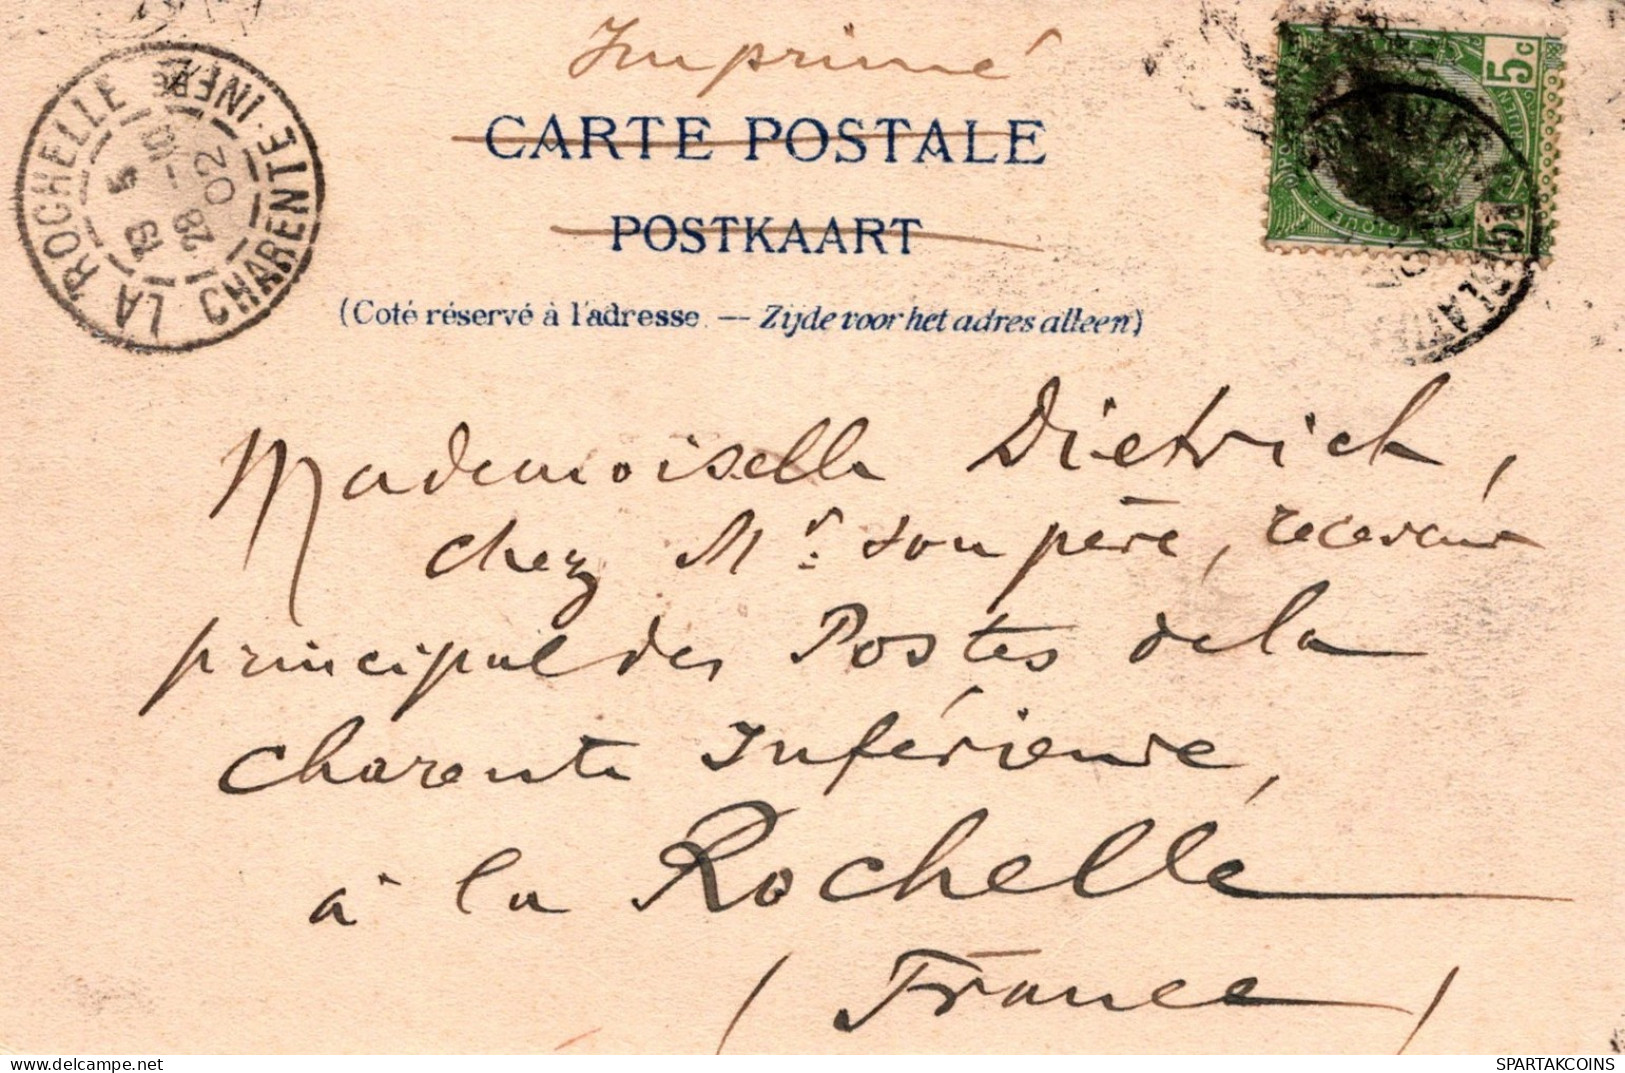 Imprimé
CARTE POSTALE
POSTKAART
(Coté réservé à l'adresse. — Zijde voor het adres alleen)
LA ROCHELLE CHARENTE-INFRE
5
19
28
-10
02
5c
5c
Mademoiselle Dietrich,
chez Mr. son père, receveur
principal des Postes de la
Charente Inférieure,
à la Rochelle
(France)
SPARTAKCOINS